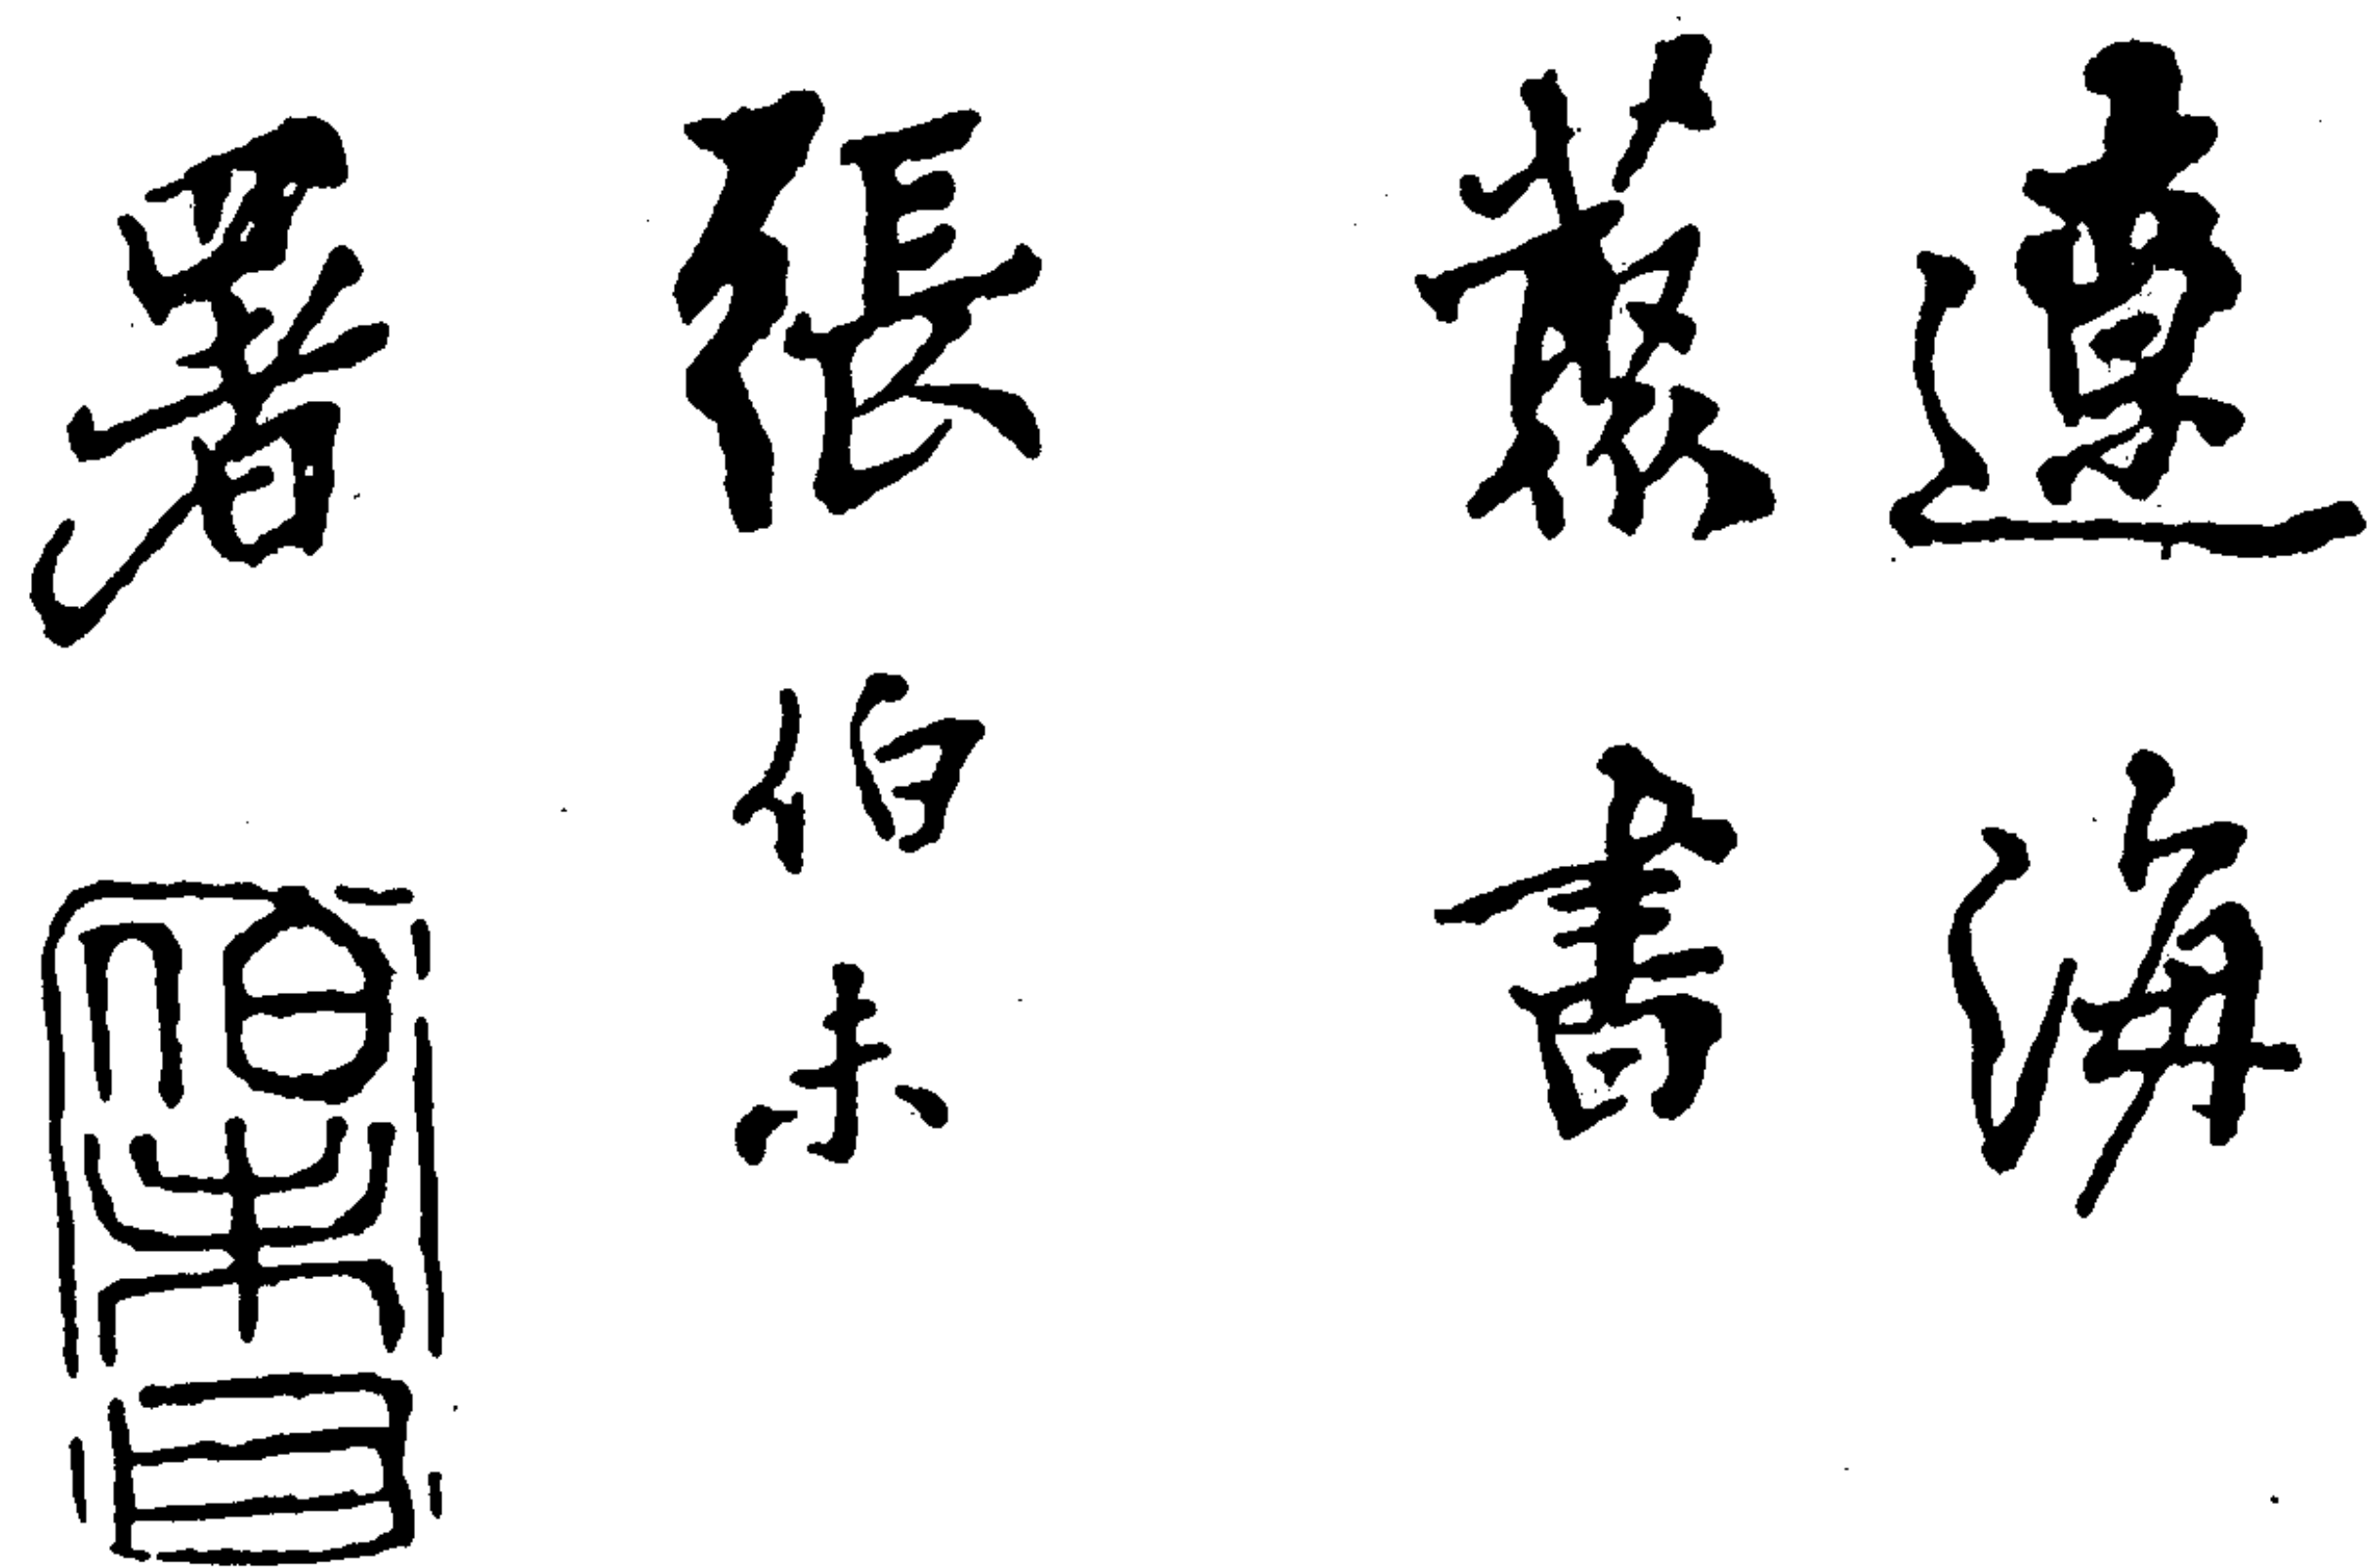 遼海
叢書
張伯未
署
伯未